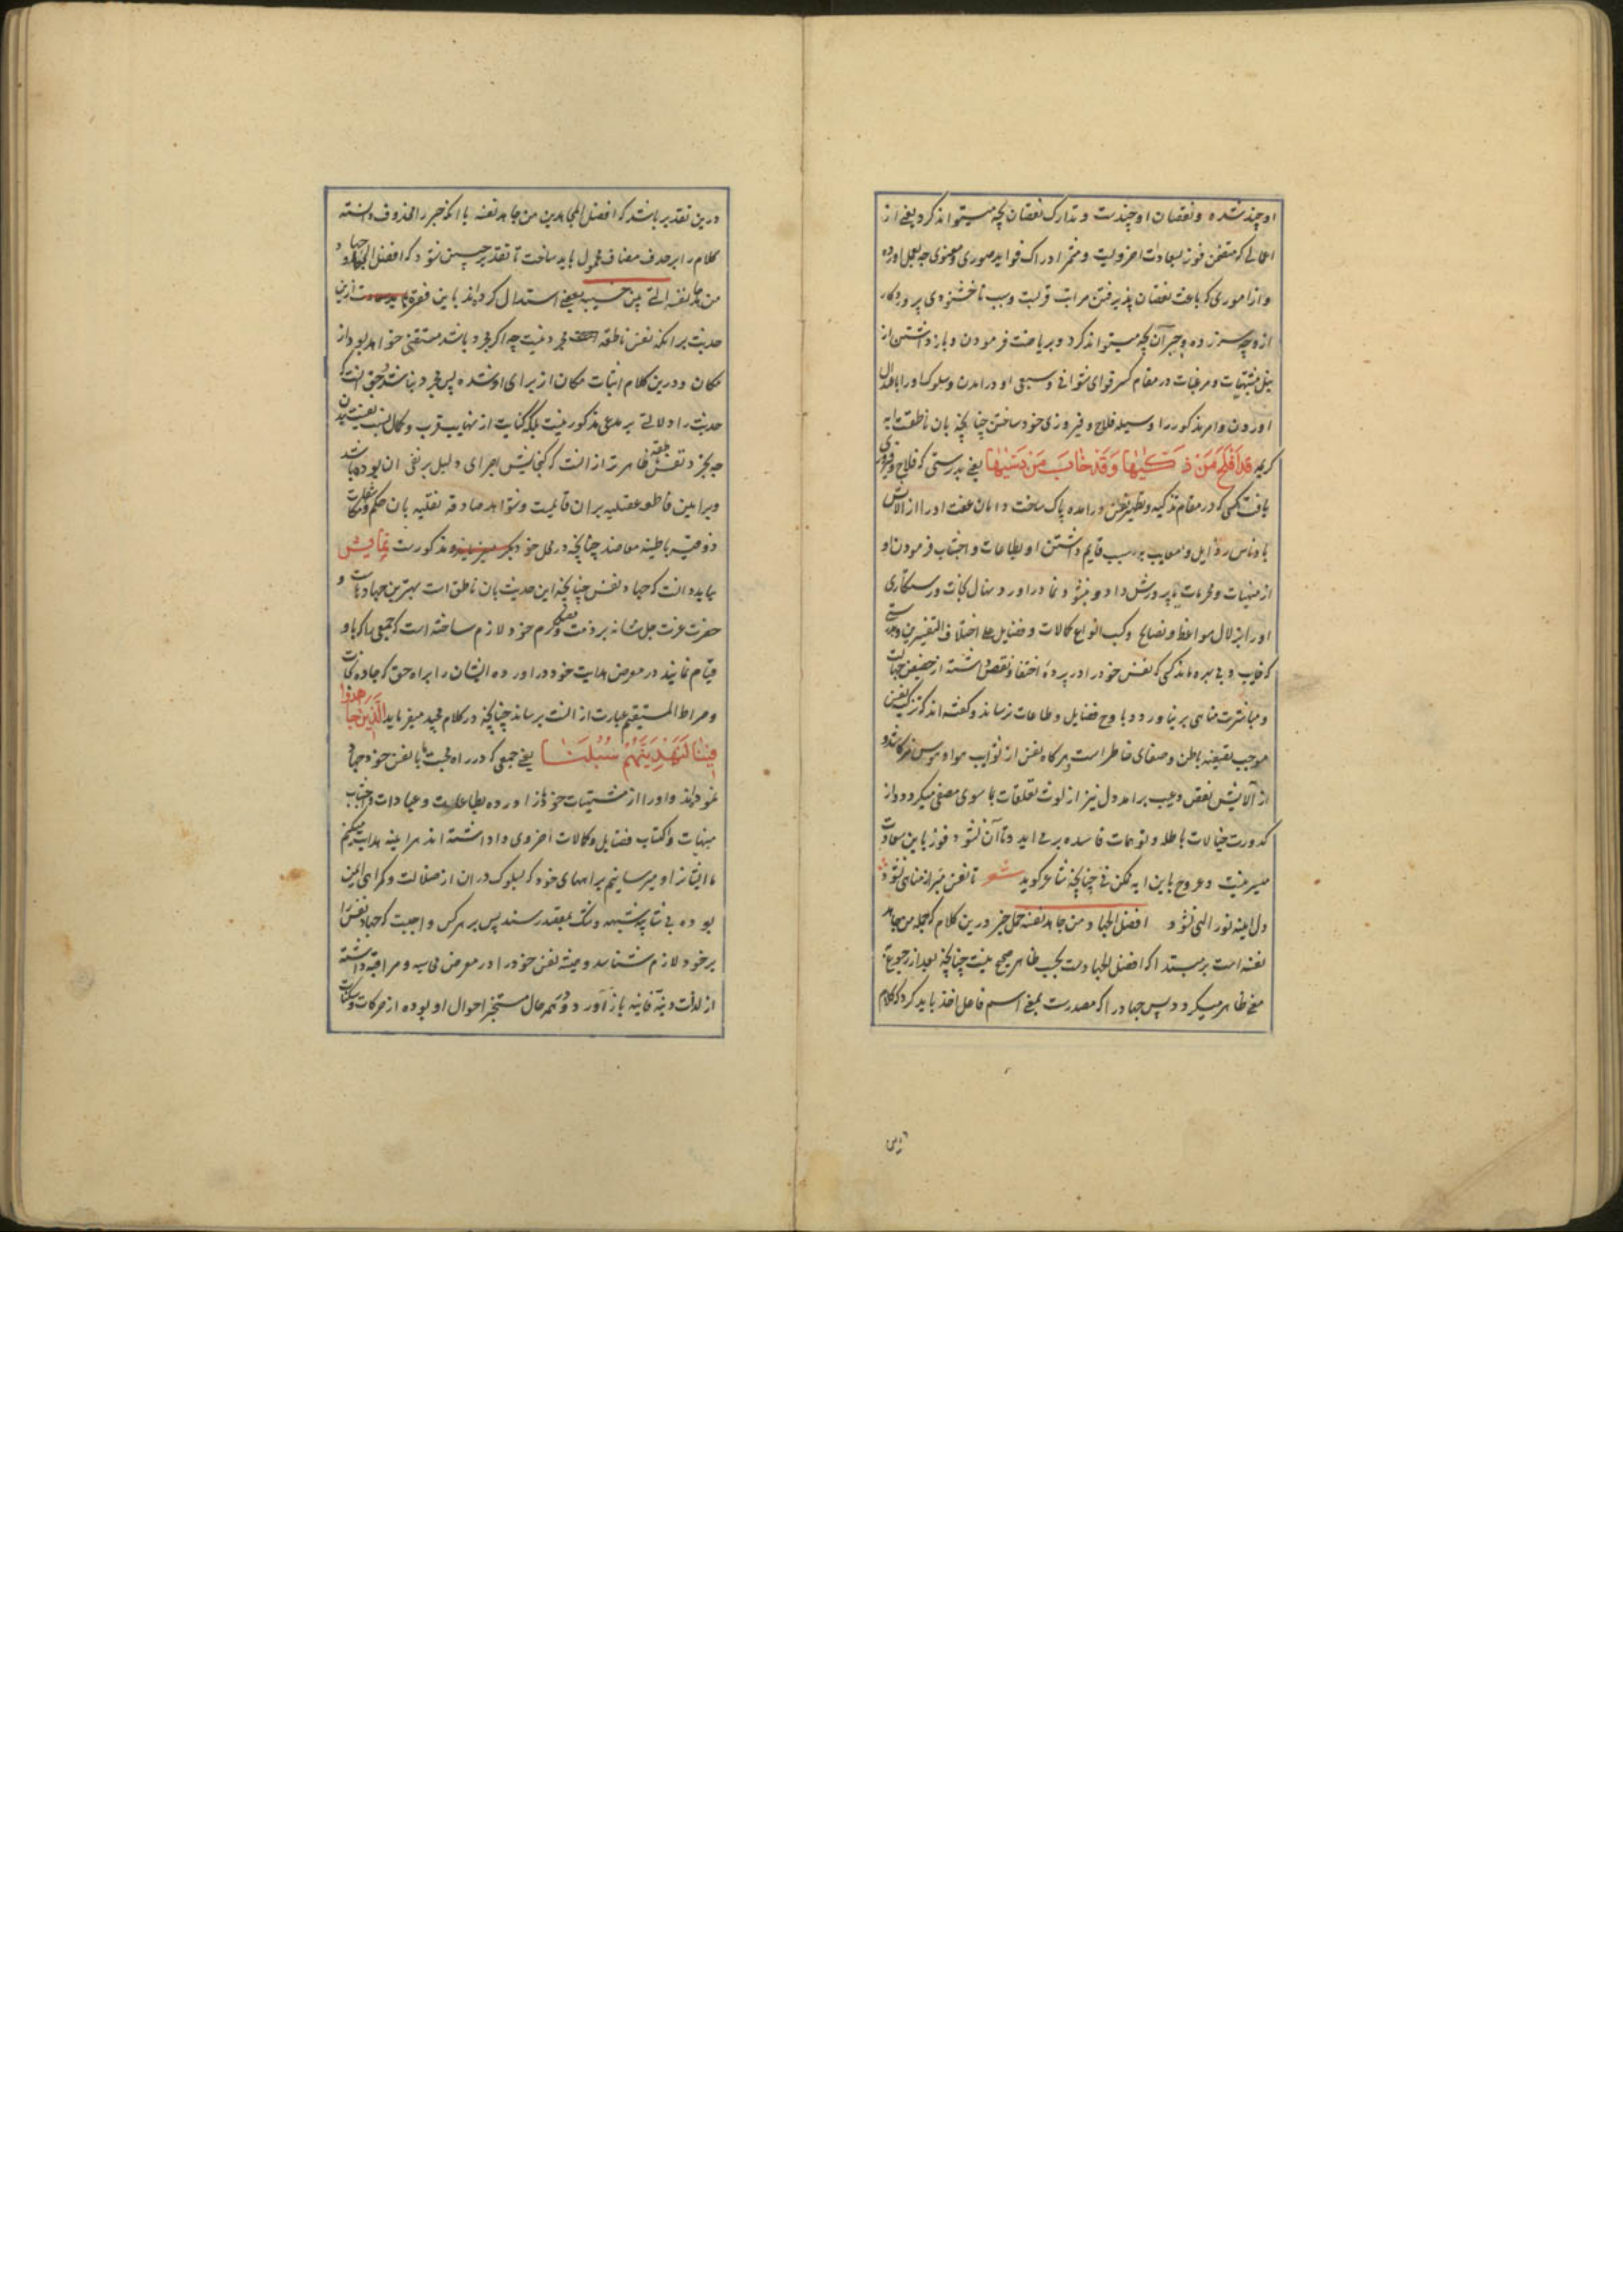 او چند شده و نقصان او چندست و تدارک نقصان بچه میتواند کرد یعنی از
اعمالی که متضمن فوز بسعادات اخرویست و مثمر ادراک فواید صوری و معنوی چه بعمل اورده
و از اموری که باعث نقصان پذیرفتن مراتب قربت و سبب ناخشنودی پروردکار
از و چه سر زده و جبر آن بچه میتواند کرد و بریاضت فرمودن و باز داشتن از
نیل مشتهیات و مرغبات در مقام کسر قوای شهوانی و سبعی او در امدن و سلوک او را باعتدال
اوردن و امر مذکور را وسیله فلاح و فیروزی خود ساختن چنانچه بان ناطقست ایه
کریمه قد افلح من زکیها و قد خاب من دسیها یعنی بدرستی که فلاح و فیروزی
یافت کسی که در مقام تزکیه و تطهیر نفس در امده پاک ساخت دامان عفت او را از الایش
بادناس رذایل و معایب به سبب قایم داشتن او بطاعات و اجتناب فرمودن او
از منهیات و محرمات تا پرورش داد و نشو و نما در اورد نهال نجات و رستکاری
او را بزلال مواعظ و نصایح و کسب انواع کمالات و فضایل علی اختلاف التفسیرین و بدرستی
که خایب و بی بهره ماند کسی که نفس خود را در پرده اختفا و نقص داشته از حضیض جهالت
و مباشرت مناهی بر نیاورد و باوج فضایل و طاعات نرساند و کفته اند که تزکیه نفس
موجب تصفیه باطن و صفای خاطر است و هر کاه نفس از شوایب هوا و هوس منزه کشته و
از آلایش نقص و عیب براید دل نیز از لوث تعلقات ما سوی مصفی میکردد و از
کدورت خیالات باطله و توهمات فاسده بر می اید و تا آن نشود فوز باین سعادت
میسر نیست و عروج باین پایه ممکن نی چنانچه شاعر کوید شعر تا نفس مبرا ز مناهی نشود
دل اینه نور الهی نشود افضل الجهاد من جاهد نفسه حمل خبر درین کلام که جمله من جاهد
نفسه است بر مبتدا که افضل الجهادست بحسب ظاهر صحیح نیست چنانچه بعد از رجوع به
معنی ظاهر میکردد پس جهاد را که مصدرست بمعنی اسم فاعل اخذ باید کرد که کلام
درین تقدیر باشد که افضل المجاهدین من جاهد نفسه یا انکه خبر را محذوف دانسته
کلام را بر حذف مضاف محمول باید ساخت تا تقدیر چنین شود که افضل الجهاد جهاد
من جاهد نفسه التی بین جنبیه بعضی استدلال کرده اند باین فقره ازین
حدیث بر انکه نفس ناطقه مجرد نیست چه اکر مجرد باشد مستغنی خواهد بود از
مکان و درین کلام اثبات مکان از برای او شده پس مجرد نباشد و حق انست که
حدیث را دلالتی بر مدعی مذکور نیست بلکه کنایت از نهایت قرب و کمال نسبت نفس ببدن
چه تجرد نفس ناطقه ظاهر تر از انست که کنجایش اجرای دلیل بر نفی ان بوده باشد
و براهین قاطعه عقلیه بران قایمست و شواهد صادقه نقلیه بان حکم و مکاشفات
ذوقیه باطینه معاضد چنانچه در محل خود مذکورست نمایش
بباید دانست که جهاد نفس چنانچه این حدیث بان ناطق است بهترین جهادهاست و
حضرت عزت جل شانه بر ذمت فضل و کرم خود لازم ساخته است که جمعی را که باو
قیام نمایند در معرض هدایت خود در اورده ایشان را براه حق که جاده نجات
و صراط المستقیم عبارت از انست برساند چنانچه در کلام مجید میفرماید الذین جاهدوا
فینا لنهدینهم سبلنا یعنی جمعی که در راه محبت ما با نفس خود جهاد
نموده اند و او را از مشتهیات خود باز اورده بطاعات و عبادات و اجتناب
منهیات و اکتساب فضایل و کمالات اخروی وا داشته اند هر اینه هدایت میکنم
ما ایشان را و میرسانیم براههای خود که بسلوک دران از ضلالت و کمراهی ایمن
بوده بی شایبه شبهه و شک بمقصد رسند پس بر هر کس واجبست که جهاد نفس را
بر خود لازم شناسد و همیشه نفس خود را در معرض محاسبه و مراقبه داشته
از لذات دنیه فانیه باز آورد و در همه حال مستخبر احوال او بوده از حرکات و سکنات